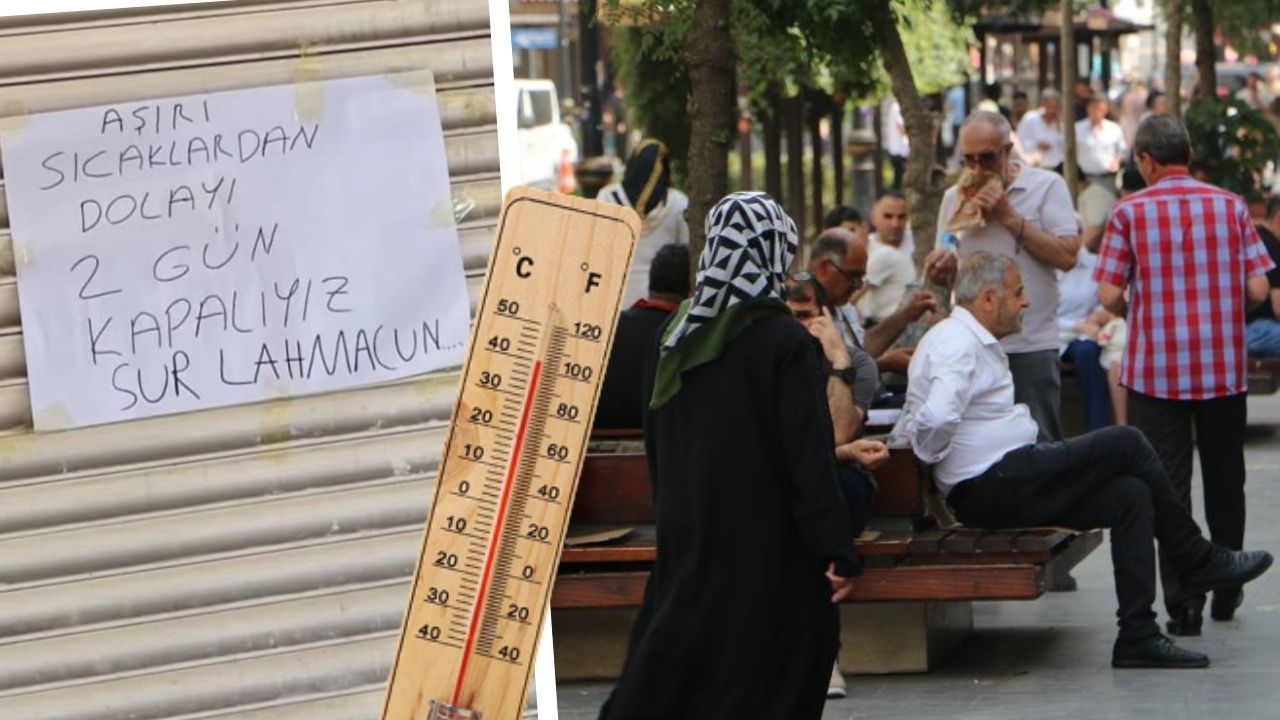 AŞIRI
SICAKLARDAN
DOLAYI
2 GÜN
KAPALIYIZ
SUR LAHMACUN....
°C °F
50 120
40 100
30 80
20 60
10 40
0 20
10 0
20 20
30 40
40